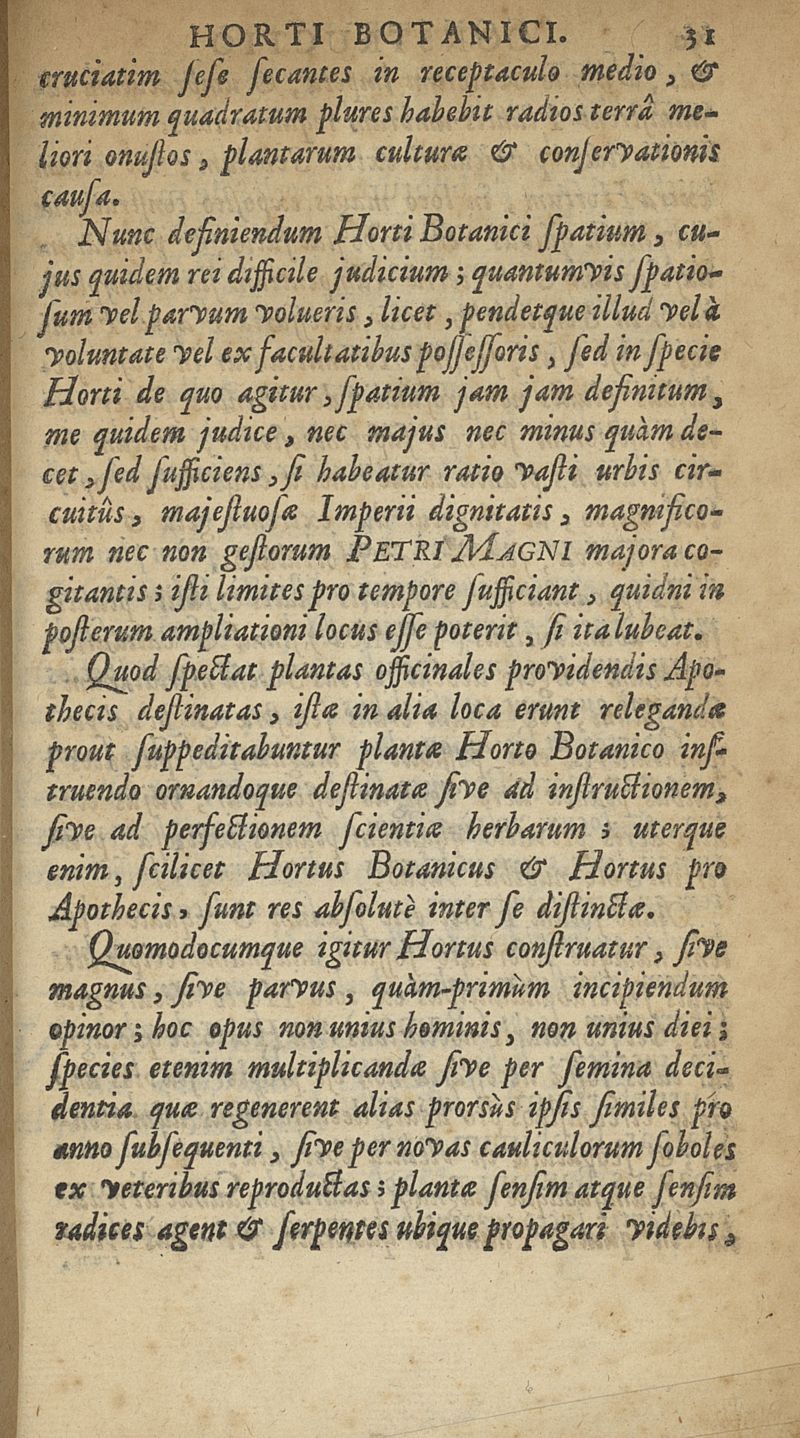 HORTI BOTANICI. 31
cruciatim ſeſe ſecantes in receptaculo medio, &
minimum quadratum plures habebit radios terrâ me-
liori onuſtos, plantarum culturæ & conſervationis
cauſa.
Nunc definiendum Horti Botanici ſpatium, cu-
jus quidem rei difficile judicium; quantumvis ſpatio-
ſum vel parvum volueris, licet, pendetque illud vel à
voluntate vel ex facultatibus poſſeſſoris, ſed in ſpecie
Horti de quo agitur, ſpatium jam jam definitum,
me quidem judice, nec majus nec minus quàm de-
cet, ſed ſufficiens, ſi habeatur ratio vaſti urbis cir-
cuitûs, majeſtuoſæ Imperii dignitatis, magnifico-
rum nec non geſtorum PETRI MAGNI majora co-
gitantis; iſti limites pro tempore ſufficiant, quidni in
poſterum ampliationi locus eſſe poterit, ſi ita lubeat.
Quod ſpectat plantas officinales providendis Apo-
thecis deſtinatas, iſtæ in alia loca erunt relegandæ
prout ſuppeditabuntur plantæ Horto Botanico inſ-
truendo ornandoque deſtinatæ ſive ad inſtructionem,
ſive ad perfectionem ſcientiæ herbarum; uterque
enim, ſcilicet Hortus Botanicus & Hortus pro
Apothecis, ſunt res abſolutè inter ſe diſtinctæ.
Quomodocumque igitur Hortus conſtruatur, ſive
magnus, ſive parvus, quàm-primùm incipiendum
opinor; hoc opus non unius hominis, non unius diei;
ſpecies etenim multiplicandæ ſive per ſemina deci-
dentia quæ regenerent alias prorsùs ipſis ſimiles pro
anno ſubſequenti, ſive per novas cauliculorum ſoboles
ex veteribus reproductas; plantæ ſenſim atque ſenſim
radices agent & ſerpentes ubique propagari videbis,